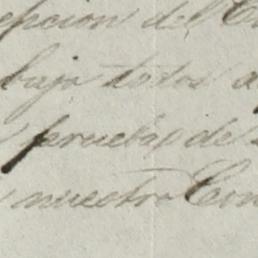 epcion del C
bajo todos a
pruebas de
nuestro Con